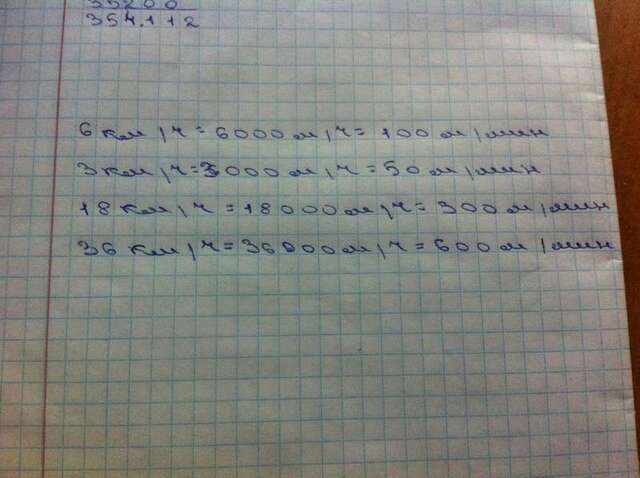 35200
354112
6 км/ч = 6000 м/ч = 100 м/мин
3 км/ч = 3000 м/ч = 50 м/мин
18 км/ч = 18000 м/ч = 300 м/мин
36 км/ч = 36000 м/ч = 600 м/мин